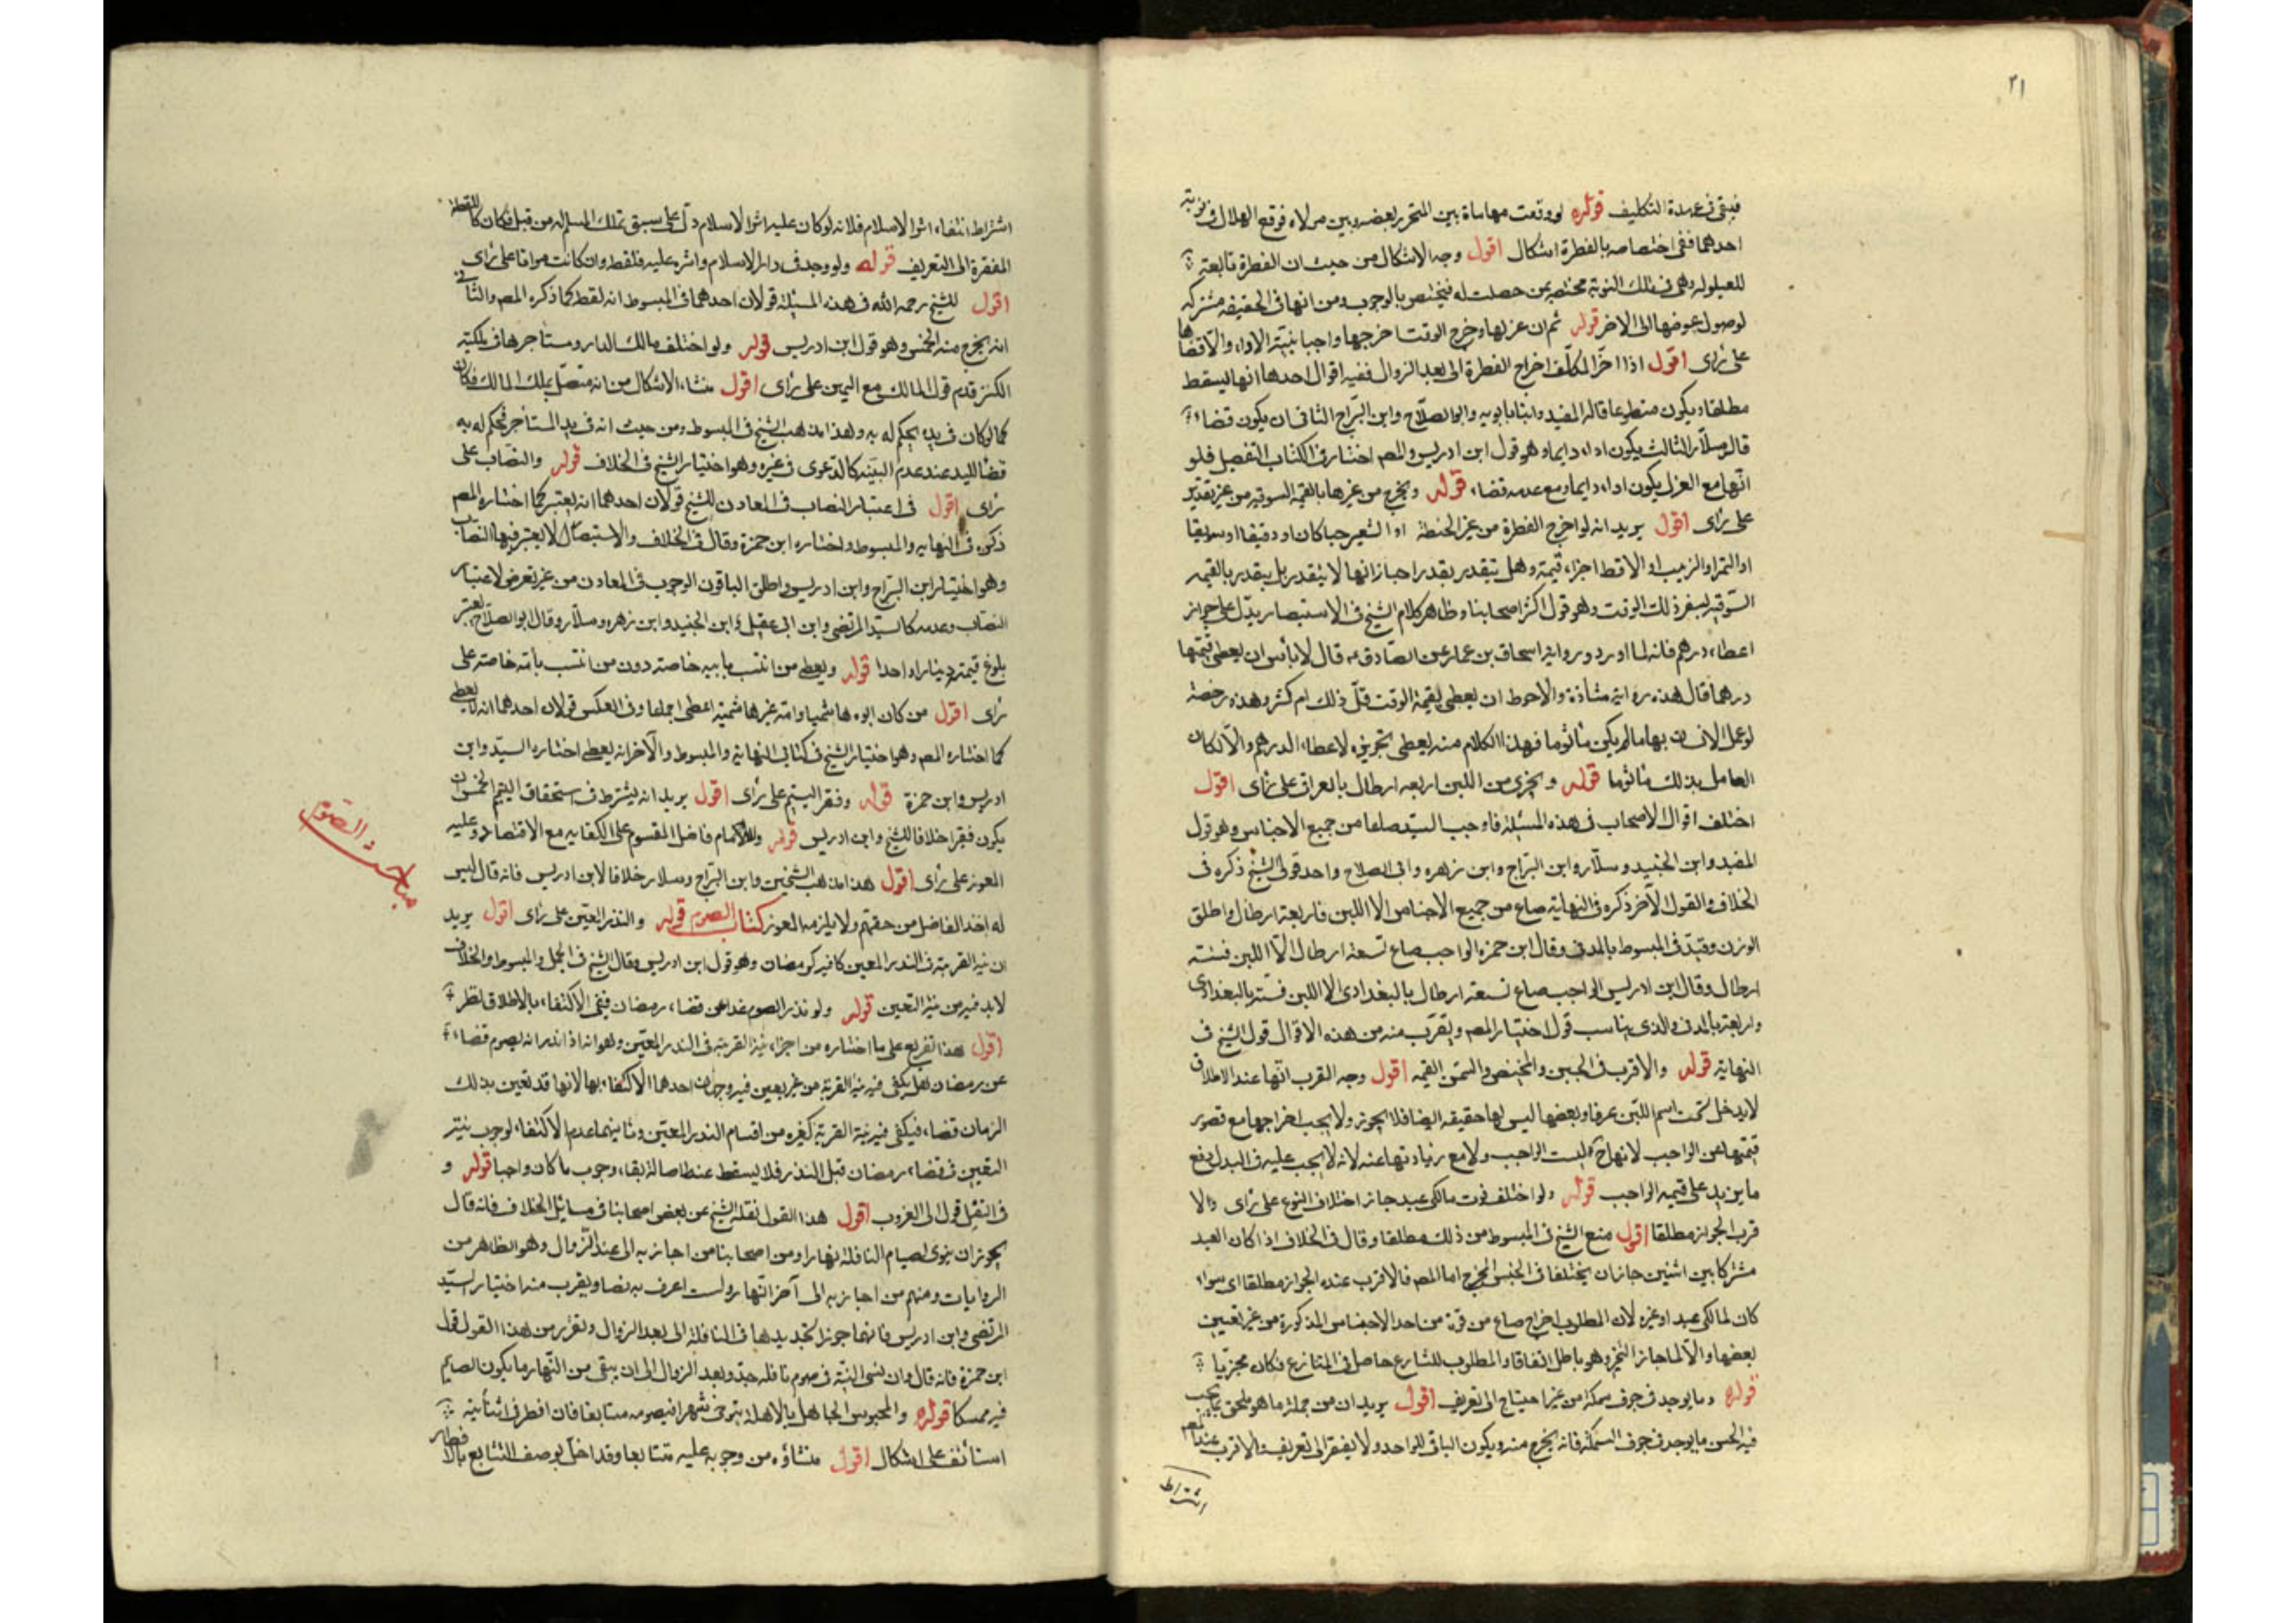 ٢١
فبقى فى عهدة التكليف قوله لو وقعت مهاياة بين المتحرر بعضه وبين مولاه فوقع الهلال فى نوبة
احدهما ففى اختصاصه بالفطرة اشكال اقول وجه الاشكال من حيث ان الفطرة تابعة
للعيلولة وهى فى تلك النوبة مختصة بمن حصلت له فيختص بالوجوب ومن انها فى الحقيقه مشتركه
لوصول عوضها الى الاخر قوله ثم ان عزلها وخرج الوقت اخرجها واجبا بنية الاداء والا قضاها
على راى اقول اذا اخر المكلف اخراج الفطرة الى بعد الزوال ففيه اقوال احدها انها يسقط
مطلقا ويكون متطوعا قاله المفيد وابنا بابويه وابو الصلاح وابن البراج الثانى ان يكون قضاء
قاله سلار الثالث يكون اداء دايما وهو قول ابن ادريس والمص اختار فى الكتاب التفصيل فلو
انها مع العزل يكون اداء دايما ومع عدمه قضاء قوله ويخرج من غيرها بالقيمه السوقيه من غير تقدير
على راى اقول يريد انه لو اخرج الفطرة من غير الحنطة او الشعير حبا كان او دقيقا او سويقا
او التمر او الزبيب او الاقط اجزاء قيمة وهل تتقدر بقدر اجازانها لا يتقدر بل يتقدر بالقيمه
السوقيه بسعر ذلك الوقت وهو قول اكثر اصحابنا وظاهر كلام الشيخ فى الاستبصار يدل على جواز
اعطاء درهم فانه لما اورد رواية اسحاق بن عمار عن الصادق ع قال لا باس ان يعطى قيمتها
درهما قال هذه رواية شاذة والاحوط ان يعطى بقيمة الوقت قل ذلك ام كثر وهذه رخصة
لو عمل الانسان بها ما لم يكن ماثوما فهذا الكلام منه يعطى تجويزه لاعطاء الدرهم والا لكان
العامل بذلك ماثوما قوله ويجزى من اللبن اربعه ارطال بالعراقى على راى اقول
اختلف اقوال الاصحاب فى هذه المسئلة فاوجب السيد صاعا من جميع الاجناس وهو قول
المفيد وابن الجنيد وسلار وابن البراج وابن زهره وابى الصلاح واحد قولى الشيخ ذكره فى
الخلاف والقول الآخر ذكره فى النهاية صاع من جميع الاجناس الا اللبن فاربعة ارطال واطلق
الوزن وقيد فى المبسوط بالمدنى وقال ابن حمزه الواجب صاع تسعة ارطال الا اللبن فستة
ارطال وقال ابن ادريس الواجب صاع تسعة ارطال بالبغدادى الا اللبن فستة بالبغدادى
واربعة بالمدنى والذى يناسب قول اختيار المص ويقرب منه من هذه الاقوال قول الشيخ فى
النهاية قوله والاقرب فى الجبن والمخيض والسمن القيمه اقول وجه القرب انها عند الاطلاق
لا يدخل تحت اسم اللبن عرفا وبعضها ليس لها حقيقه ايضا فلا يجوز ولا يجب اخراجها مع قصور
قيمتها عن الواجب لانها ليست الواجب ولا مع زيادتها عنه لانه لا يجب عليه فى البدل دفع
ما يزيد على قيمه الواجب قوله ولو اختلف قوت مالكى عبد جاز اختلاف النوع على راى والا
قرب الجواز مطلقا اقول منع الشيخ فى المبسوط من ذلك مطلقا وقال فى الخلاف اذا كان العبد
مشتركا بين اثنين جاز ان يختلفا فى الجنس المخرج اما المص فالاقرب عنده الجواز مطلقا اى سواء
كان لمالكى عبد او غيره لان المطلوب اخراج صاع من قوت من احد الاجناس المذكورة من غير تعيين
بعضها والا لما جاز التخير وهو باطل اتفاقا والمطلوب للشارع حاصل فى المتنازع فكان مجزيا
قوله وما يوجد فى جوف سمكة من غير احتياج الى تعريف اقول يريد ان من جملة ما هو ملحق بما يجب
فيه الخمس ما يوجد فى جوف السمكة فانه يخرج منه ويكون الباقى للواحد ولا يفتقر الى تعريف والاقرب عند المص
اشتراط
اشتراط انتفاء اثر الاسلام فلانه لو كان عليه اثر الاسلام دل على سبق تملك المسلم له من قبل فكان كاللقطة
المفتقرة الى التعريف قوله ولو وجد فى دار الاسلام واثره عليه فلقطة وان كانت مواتا على راى
اقول للشيخ رحمه الله فى هذه المسئلة قولان احدهما فى المبسوط انه لقطة كما ذكره المص والثانى
انه يخرج منه الخمس وهو قول ابن ادريس قوله ولو اختلف مالك الدار ومستاجرها فى ملكية
الكنز قدم قول المالك مع اليمين على راى اقول منشاء الاشكال من انه متصل بملك المالك فكان
كما لو كان فى يده يحكم له به وهذا مذهب الشيخ فى المبسوط ومن حيث انه فى يد المستاجر فحكم له به
قضاء لليد عند عدم البينه كالدعوى فى غيره وهو اختيار الشيخ فى الخلاف قوله والنصاب على
راى اقول فى اعتبار النصاب فى المعادن للشيخ قولان احدهما انه يعتبر كما اختاره المص
ذكره فى النهايه والمبسوط واختاره ابن حمزة وقال فى الخلاف والاستبصار لا يعتبر فيها النصاب
وهو اختيار ابن البراج وابن ادريس واطلق الباقون الوجوب فى المعادن من غير تعرض لاعتبار
النصاب وعدمه كالسيد المرتضى وابن ابى عقيل وابن الجنيد وابن زهره وسلار وقال ابو الصلاح يعتبر
بلوغ قيمته دينارا واحدا قوله ويعطى من انتسب بابيه خاصة دون من انتسب بامه خاصة على
راى اقول من كان ابوه هاشميا وامه غير هاشمية اعطى اجماعا وفى العكس قولان احدهما انه لا يعطى
كما اختاره المص وهو اختيار الشيخ فى كتابى النهاية والمبسوط والآخر انه يعطى اختاره السيد وابن
ادريس وابن حمزة قوله وفقر اليتيم على راى اقول يريد انه يشترط فى استحقاق اليتيم الخمس ان
يكون فقيرا خلافا للشيخ وابن ادريس قوله وللامام فاضل المقسوم على الكفايه مع الاقتصاد وعليه
المعوز على راى اقول هذا مذهب الشيخين وابن البراج وسلار خلافا لابن ادريس فانه قال ليس
له اخذ الفاضل من حقهم ولا يلزمه المعوز كتاب الصوم قوله والنذر المعين على راى اقول يريد
ان نية القربة فى النذر المعين كافيه كرمضان وهو قول ابن ادريس وقال الشيخ فى الجمل والمبسوط والخلاف
لابد فيه من نية التعين قوله ولو نذر الصوم غدا عن قضاء رمضان ففى الاكتفاء بالاطلاق نظر
اقول هذا تفريع على ما اختاره من اجزاء نية القربة فى النذر المعين وهو انه اذا نذر انه يصوم قضاء
عن رمضان هل يكفى فيه نية القربة من غير تعيين فيه وجهان احدهما الاكتفاء بها لانها قد تعين بذلك
الزمان قضاء فيكفى فيه نية القربة كغيره من اقسام النذر المعين وثانيهما عدم الاكتفاء لوجوب نية
التعيين فى قضاء رمضان قبل النذر فلا يسقط عنه لاصالة بقاء وجوب ما كان واجبا قوله و
فى النفل قول الى الغروب اقول هذا القول نقله الشيخ عن بعض اصحابنا فى مسائل الخلاف فانه قال
يجوز ان ينوى لصيام النافلة نهارا ومن اصحابنا من اجازه الى عند الزوال وهو الظاهر من
الروايات ومنهم من اجازه الى آخر النهار ولست اعرف به نصا ويقرب منه اختيار السيد
المرتضى وابن ادريس فانهما جوزا تجديدها فى النافلة الى بعد الزوال وتقرب من هذا القول قول
ابن حمزة فانه قال وان نسى النية فى صوم نافله جدد بعد الزوال الى ان يبقى من النهار ما يكون الصايم
فيه ممسكا قوله والمحبوس الجاهل بالاهلة يتوخى شهرا فيصومه متتابعا فان افطر فى اثنائه
استانف على اشكال اقول منشاؤه من وجوبه عليه متتابعا وقد اخل بوصف التتابع بالافطار
مباحث الصوم